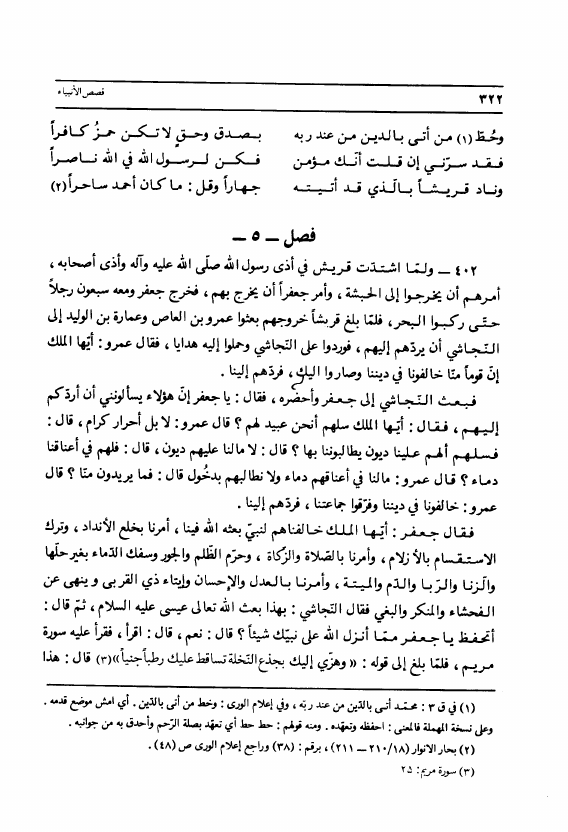 قصص الأنبياء
٣٢٢
وحُطّ (١) من أتى بالدين من عند ربه بصدق وحقٍ لا تكن حمزُ كافراً
فقد سرّني إن قلت أنّك مؤمن فكن لرسول الله في الله ناصراً
وناد قريشاً بالّذي قد أتيته جهاراً وقل: ما كان أحمد ساحراً (٢)
فصل ــ ٥ ــ
٤٠٢ ــ ولمّا اشتدّت قريش في أذى رسول الله صلّى الله عليه وآله وأذى أصحابه ،
أمرهم أن يخرجوا إلى الحبشة ، وأمر جعفراً أن يخرج بهم ، فخرج جعفر ومعه سبعون رجلاً
حتّى ركبوا البحر، فلمّا بلغ قريشاً خروجهم بعثوا عمرو بن العاص وعمارة بن الوليد إلى
النّجاشي أن يردّهم إليهم ، فوردوا على النّجاشي وحملوا إليه هدايا ، فقال عمرو : أيّها الملك
إنّ قوماً منّا خالفونا في ديننا وصاروا إليك ، فردّهم إلينا .
فبعث النّجاشي إلى جعفر وأحضره ، فقال : يا جعفر إنّ هؤلاء يسألونني أن أردّكم
إليهم ، فقال : أيّها الملك سلهم أنحن عبيد لهم ؟ قال عمرو: لا بل أحرار كرام ، قال :
فسلهم ألهم علينا ديون يطالبوننا بها ؟ قال : لا مالنا عليهم ديون ، قال : فلهم في أعناقنا
دماء ؟ قال عمرو : مالنا في أعناقهم دماء ولا نطالبهم بدخُول قال : فما يريدون منّا ؟ قال
عمرو : خالفونا في ديننا وفرّقوا جماعتنا ، فردّهم إلينا .
فقال جعفر : أيّها الملك خالفناهم لنبيّ بعثه الله فينا ، أمرنا بخلع الأنداد ، وترك
الاستقسام بالأزلام ، وأمرنا بالصّلاة والزّكاة ، وحرّم الظّلم والجور وسفك الدّماء بغير حلّها
والزنا والرّبا والدّم والميتة ، وأمرنا بالعدل والإحسان وإيتاء ذي القربى وينهى عن
الفحشاء والمنكر والبغي فقال النّجاشي : بهذا بعث الله تعالى عيسى عليه السلام ، ثمّ قال :
أتحفظ يا جعفر ممّا أنزل الله على نبيّك شيئاً ؟ قال : نعم ، قال : اقرأ ، فقرأ عليه سورة
مريم ، فلمّا بلغ إلى قوله : « وهزّي إليك بجذع النّخلة تساقط عليك رطباً جنياً »(٣) قال : هذا
(١) في ق ٣ : محمّد أتى بالدّين من عند ربّه ، وفي إعلام الورى : وخط من أتى بالدّين . أي امش موضع قدمه .
وعلى نسخة المهملة فالمعنى : احفظه وتعهّده . ومنه قولهم : حط حط أي تعهّد بصلة الرّحم وأحدق به من جوانبه .
(٢) بحار الانوار (١٨/٢١٠ ــ ٢١١) ، برقم : (٣٨) وراجع إعلام الورى ص (٤٨) .
(٣) سورة مريم: ٢٥